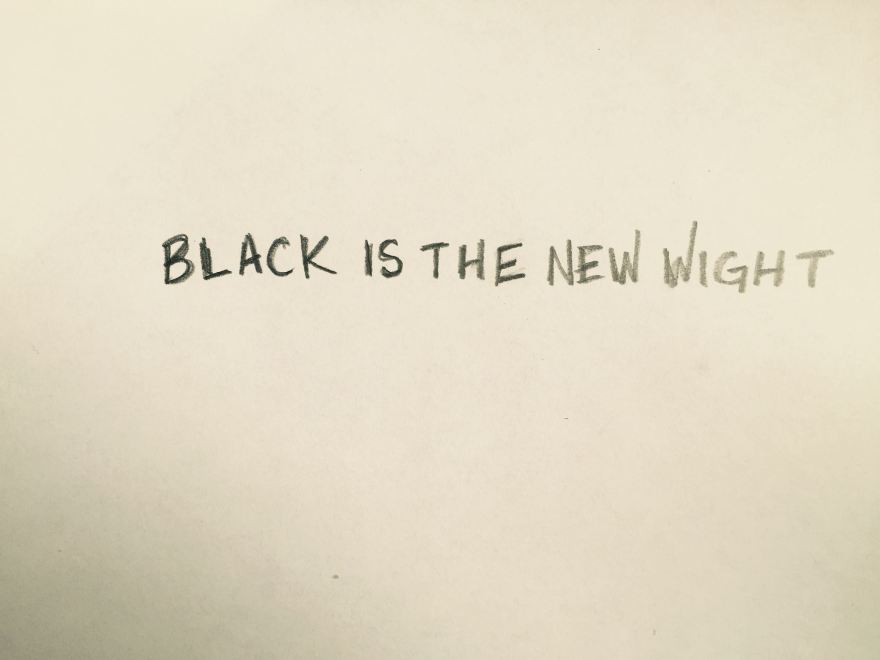 BLACK IS THE NEW WIGHT